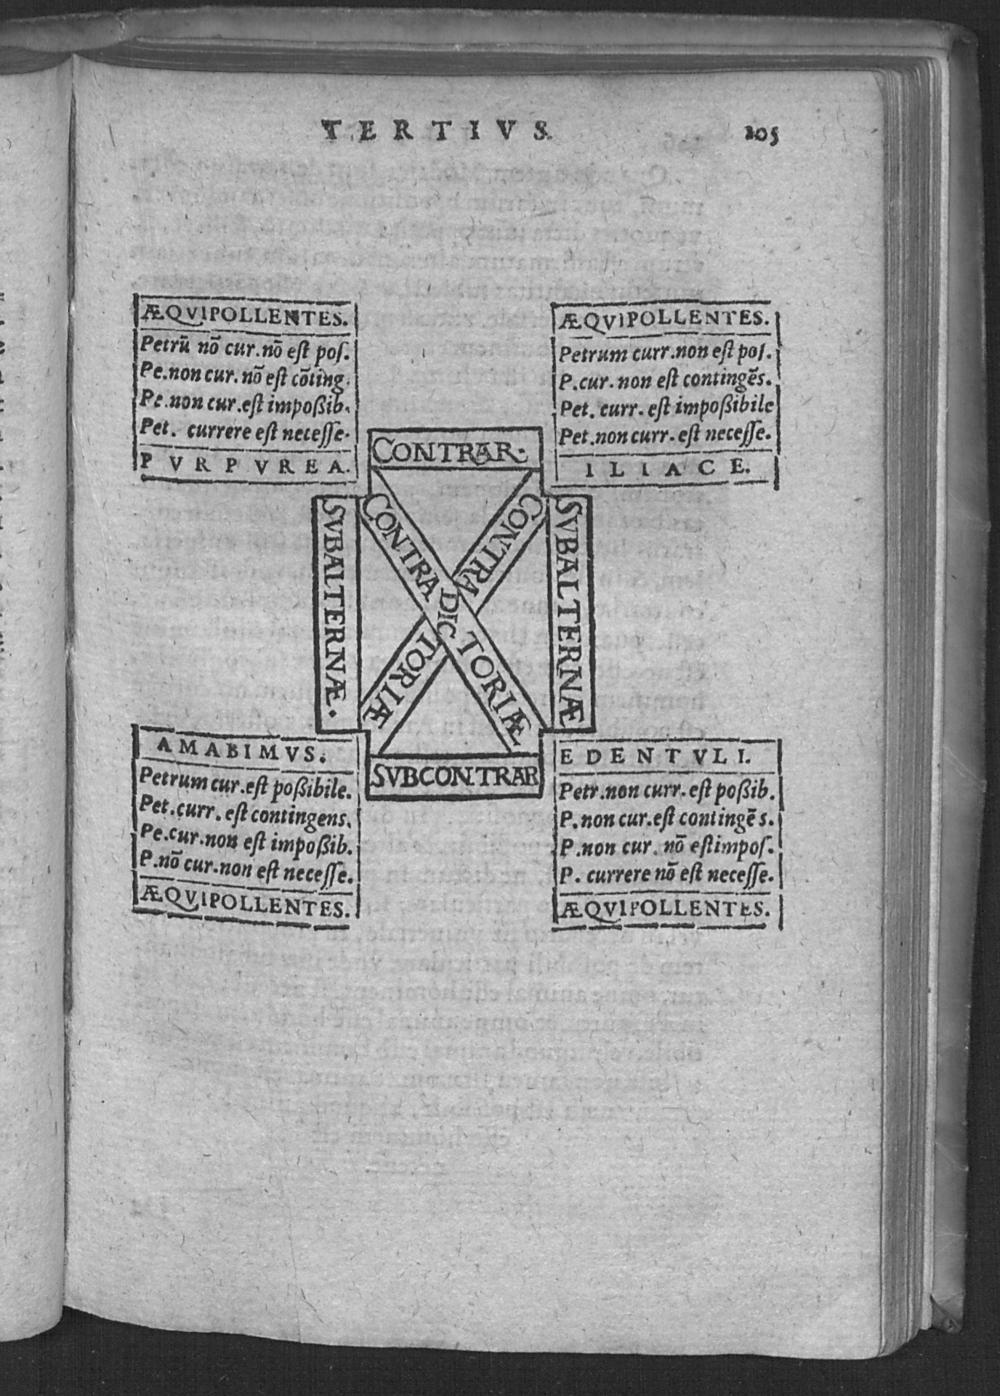 TERTIVS. 205
ÆQVIPOLLENTES.
Petrū nō cur. nō est pos.
Pe. non cur. nō est cōting.
Pe. non cur. est impoßib.
Pet. currere est necesse.
PVRPVREA.
ÆQVIPOLLENTES.
Petrum curr. non est pos.
P. cur. non est contingēs.
Pet. curr. est impoßibile
Pet. non curr. est necesse.
ILIACE.
CONTRAR.
SVBALTERNÆ.
CONTRA DIC TORIÆ
CONTRA
TORIÆ
SVBALTERNÆ
SVBCONTRAR
AMABIMVS.
Petrum cur. est poßibile.
Pet. curr. est contingens.
Pe. cur. non est impoßib.
P. nō cur. non est necesse.
ÆQVIPOLLENTES.
EDENTVLI.
Petr. non curr. est poßib.
P. non cur. est contingēs.
P. non cur. nō est impos.
P. currere nō est necesse.
ÆQVIPOLLENTES.